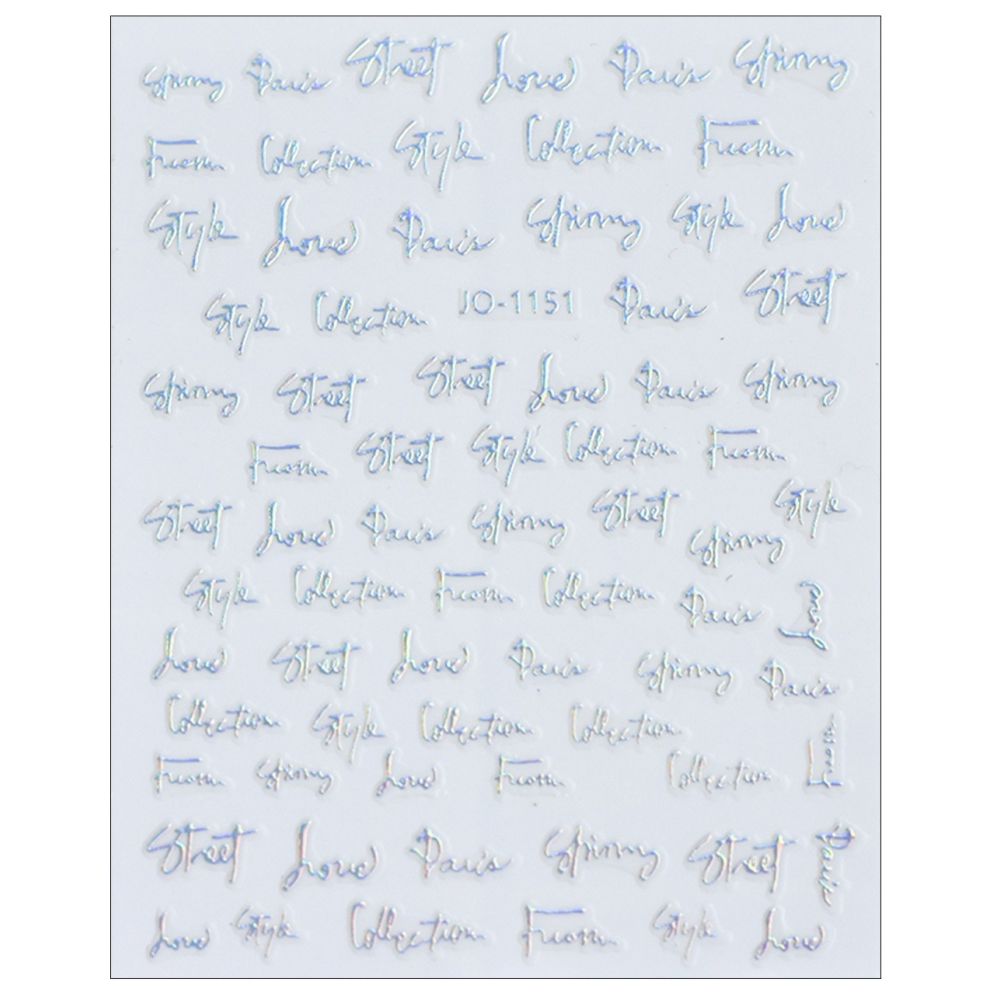 Spinmy Paris Street Love Paris Spinmy
From Collection Style Collection From
Style Love Paris Spinmy Style Love
Style Collection JO-1151 Paris Street
Spinmy Street Street Love Paris Spinmy
From Street Style Collection From
Street Love Paris Spinmy Street Spinmy Style
Style Collection From Collection Paris Love
Love Street Love Paris Spinmy Paris
Collection Style Collection Collection From
From Spinmy Love From Collection
Street Love Paris Spinmy Street Paris
Love Style Collection From Style Love